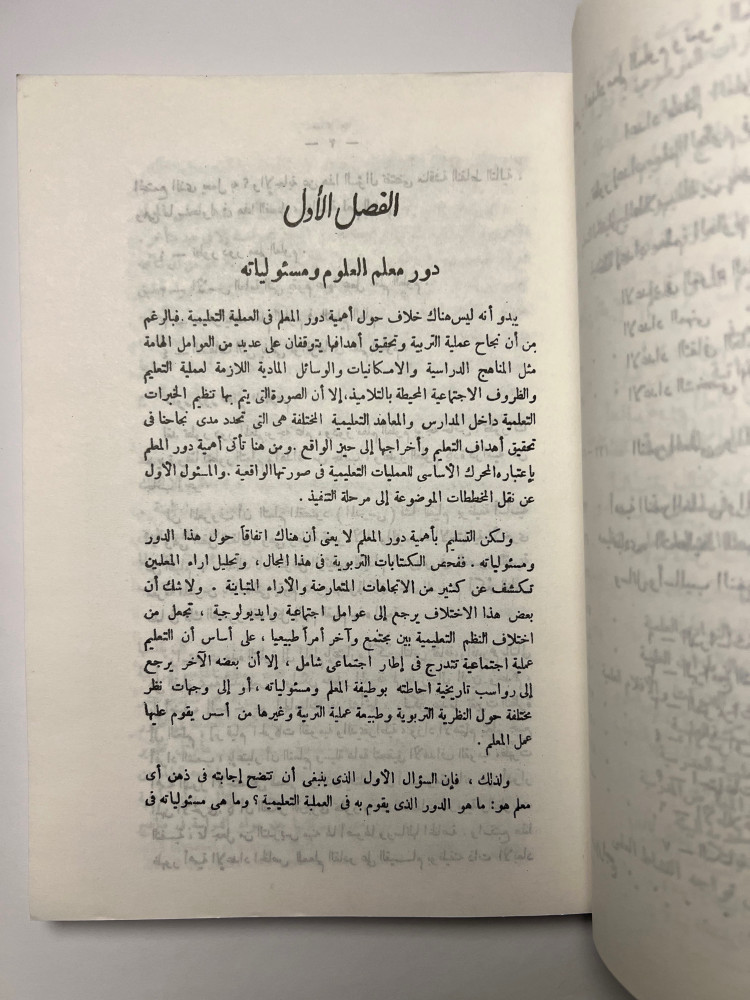 الفصل الأول
دور معلم العلوم ومسئولياته
يبدو أنه ليس هناك خلاف حول أهمية دور المعلم فى العملية التعليمية . فبالرغم
من أن نجاح عملية التربية وتحقيق أهدافها يتوقفان على عديد من العوامل الهامة
مثل المناهج الدراسية والامكانيات والوسائل المادية اللازمة لعملية التعليم
والظروف الاجتماعية المحيطة بالتلاميذ، إلا أن الصورة التى يتم بها تنظيم الخبرات
التعلمية داخل المدارس والمعاهد التعليمية المختلفة هى التى تحدد مدى نجاحنا فى
تحقيق أهداف التعليم وأخراجها إلى حيز الواقع . ومن هنا تأتى أهمية دور المعلم
بإعتباره المحرك الأساسى للعمليات التعليمية فى صورتها الواقعية . والمسئول الأول
عن نقل المخططات الموضوعة إلى مرحلة التنفيذ .
ولكن التسليم بأهمية دور المعلم لا يعنى أن هناك اتفاقاً حول هذا الدور
ومسئولياته . ففحص الكتابات التربوية فى هذا المجال ، وتحليل اراء المعلمين
تكشف عن كثير من الاتجاهات المتعارضة والآراء المتباينة . ولا شك أن
بعض هذا الاختلاف يرجع إلى عوامل اجتماعية وايديولوجية ، تجعل من
اختلاف النظم التعليمية بين مجتمع وآخر أمراً طبيعيا ، على أساس أن التعليم
عملية اجتماعية تتدرج فى إطار اجتماعى شامل ، إلا أن بعضه الآخر يرجع
إلى رواسب تاريخية احاطته بوظيفة المعلم ومسئولياته ، أو إلى وجهات نظر
مختلفة حول النظرية التربوية وطبيعة عملية التربية وغيرها من أسس يقوم عليها
عمل المعلم .
ولذلك ، فإن السؤال الأول الذى ينبغى أن تتضح إجابته فى ذهن أى
معلم هو : ما هو الدور الذى يقوم به فى العملية التعليمية ؟ وما هى مسئولياته فى